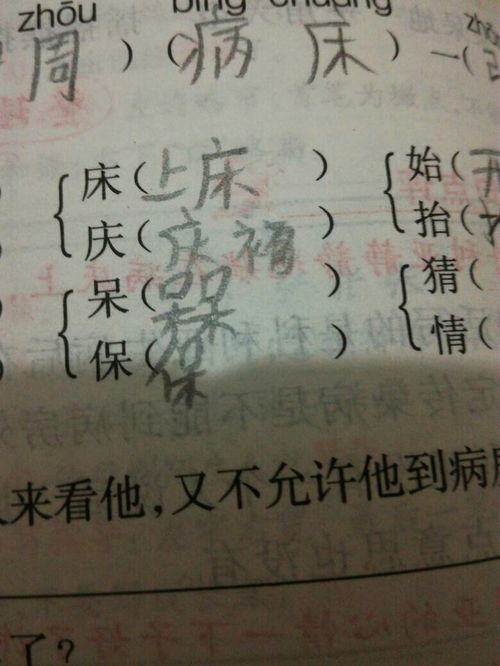 zhōu bìng chuáng
周)(病床)一(
床(上床) 始(
庆(庆福) 抬(
呆(呆呆) 猜(
保(保) 情(
来看他,又不允许他到病
了?